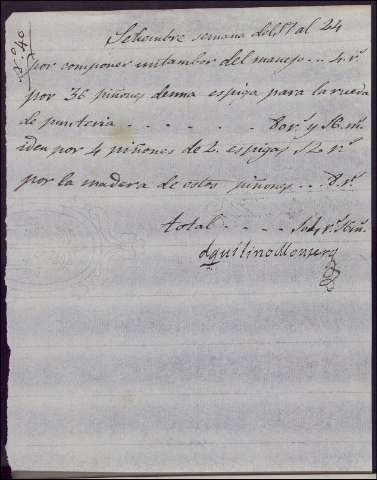 Nº 40
Setiembre semana del 17 al 24
por componer untambor del manejo ... 4 rˢ
por 36 piñones deuna espiga para la rueda
de punteria - - - - - - 80 rˢ y 16 mˢ
iden por 4 piñones de 2 espigas 12 rˢ
por la madera de estos piñones ... 8 rˢ
total - - - - 104 rˢ 16 mˢ
Aquilino